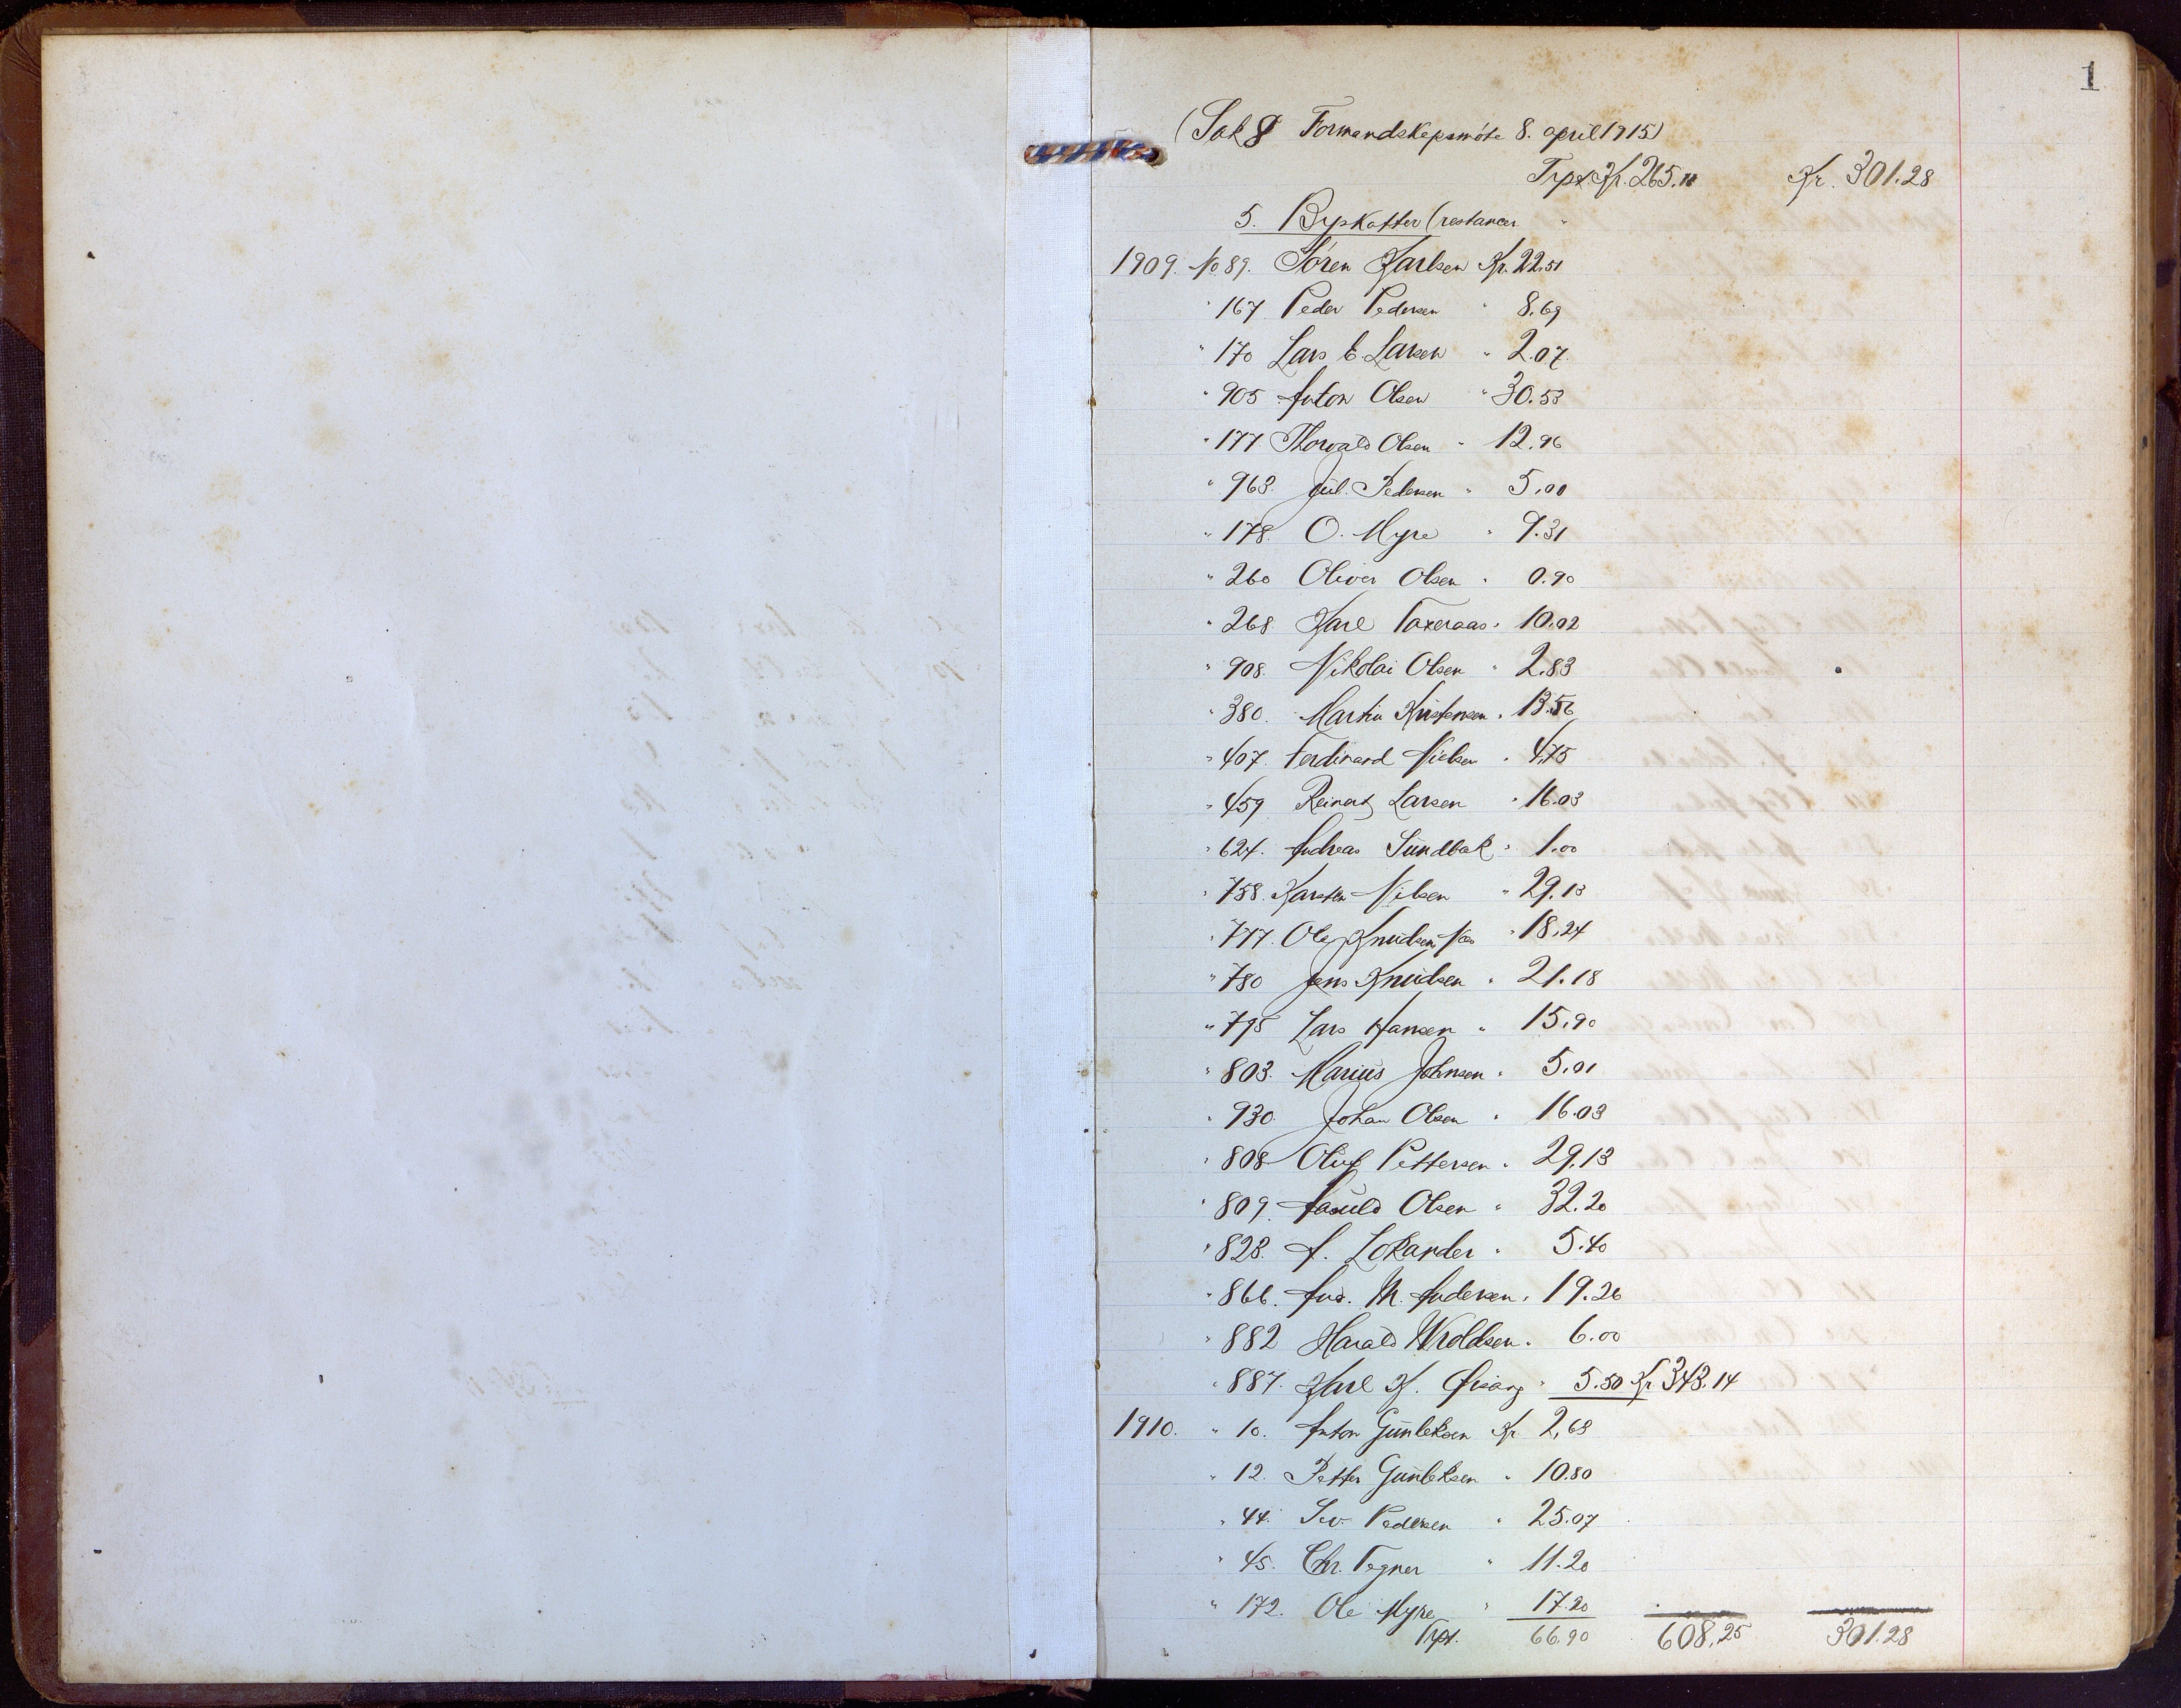 1
(Sak 8 Formandskapsmöte 8. april 1915)
Trpt. Kr. 265.11 Kr. 301.28
5. Byskatter (restancer
1909. No 89. Sören Karlsen Kr. 22.51
" 167. Peder Pedersen " 8.69
" 170 Lars E. Larsen " 2.07.
" 905 Anton Olsen " 30.53
" 177 Thorvald Olsen " 12.96
" 963. Jul. Pedersen " 5,00
" 178. O. Myre " 9.31
" 260 Oliver Olsen " 0.90
" 268 Karl Taxeraas " 10,02
" 908. Nikolai Olsen " 2.83
" 380. Martin Kristensen " 13.56
" 407. Ferdinand Nielsen " 4,75
" 459 Reinert Larsen " 16.03
" 624. Andreas Sundbak " 1.00
" 758. Karsten Nilsen " 29.13
" 777. Ole Knudsen Næs " 18,24
" 780 Jens Knudsen " 21.18
" 795 Lars Hansen " 15,90
" 803. Marius Johnsen " 5,01
" 930. Johan Olsen " 16.03
" 808 Oluf Pettersen " 29,13
" 809. Aanuld Olsen " 32.20
" 828. A. Lokander " 5.40
" 866. And. M. Andersen " 19.26
" 882 Harald Wroldsen " 6.00
" 887. Karl K. " 5.50 Kr. 343.14
1910. " 10. Anton Gunleksen Kr 2,63
" 12. Petter Gunleksen " 10.80
" 44. Sev. Pedersen " 25.07
" 45. Chr. Tegner " 11.20
" 172. Ole Myre " 17.20
Trpt. 66,90 608,25 301.28